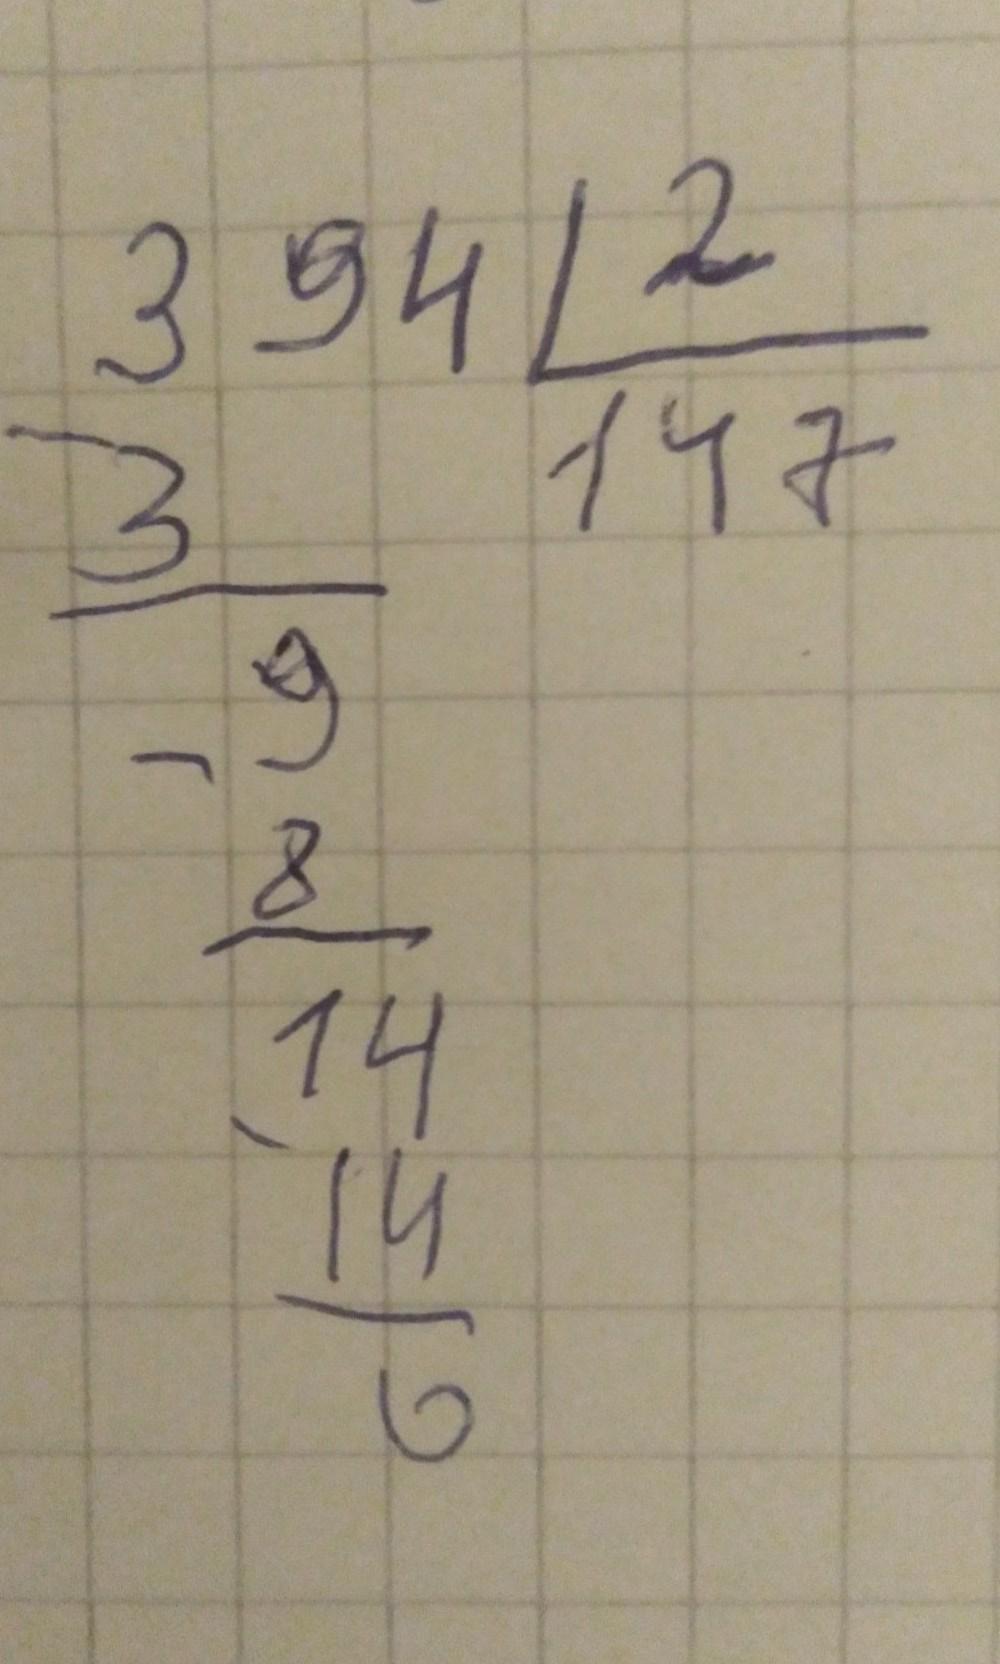 394 2
147
- 3
9
- 8
14
- 14
0